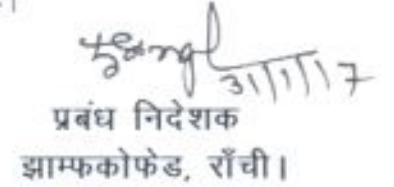 31/1/17
प्रबंध निदेशक
झाम्फकोफेड, राँची।